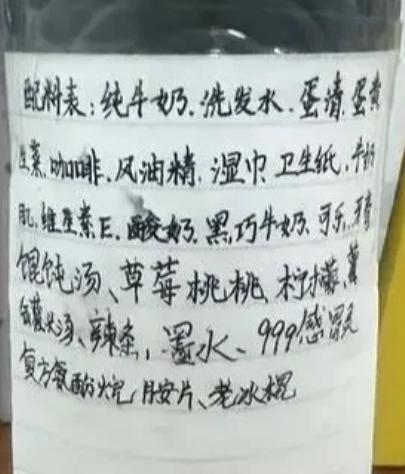 配料表:纯牛奶、洗发水、蛋清、蛋黄
生菜、咖啡、风油精、湿巾、卫生纸、牛奶
肌、维生素E、酸奶、黑巧牛奶、可乐、牙膏
馄饨汤、草莓、桃桃、柠檬、薯
头汤、辣条,墨水、999感冒灵
复方氨酚烷胺片、老冰棍